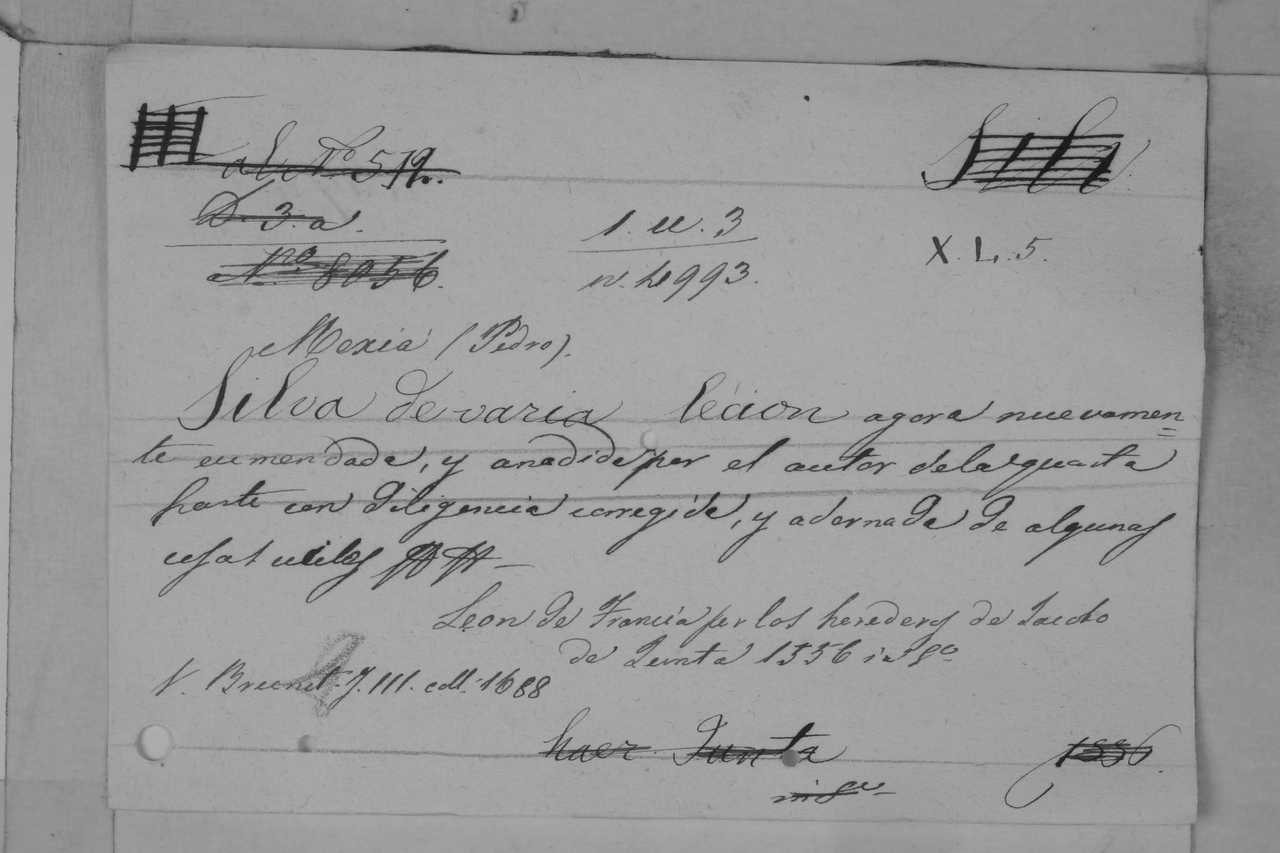 al No 519.
D. 3. a.
No 8056.
1. u. 3
n. 4993.
X. L. 5.
Mexia (Pedro).
Silva de varia lecion agora nuevamen=
te enmendada, y anadida por el autor de la quarta
parte con diligencia corregida, y adornada de algunas
cosas utiles
Leon de Francia por los herederos de Jacobo
de Junta 1556 in 8o
V. Brunet. J. III. coll. 1688
haer. Junta 1556.
in 8o